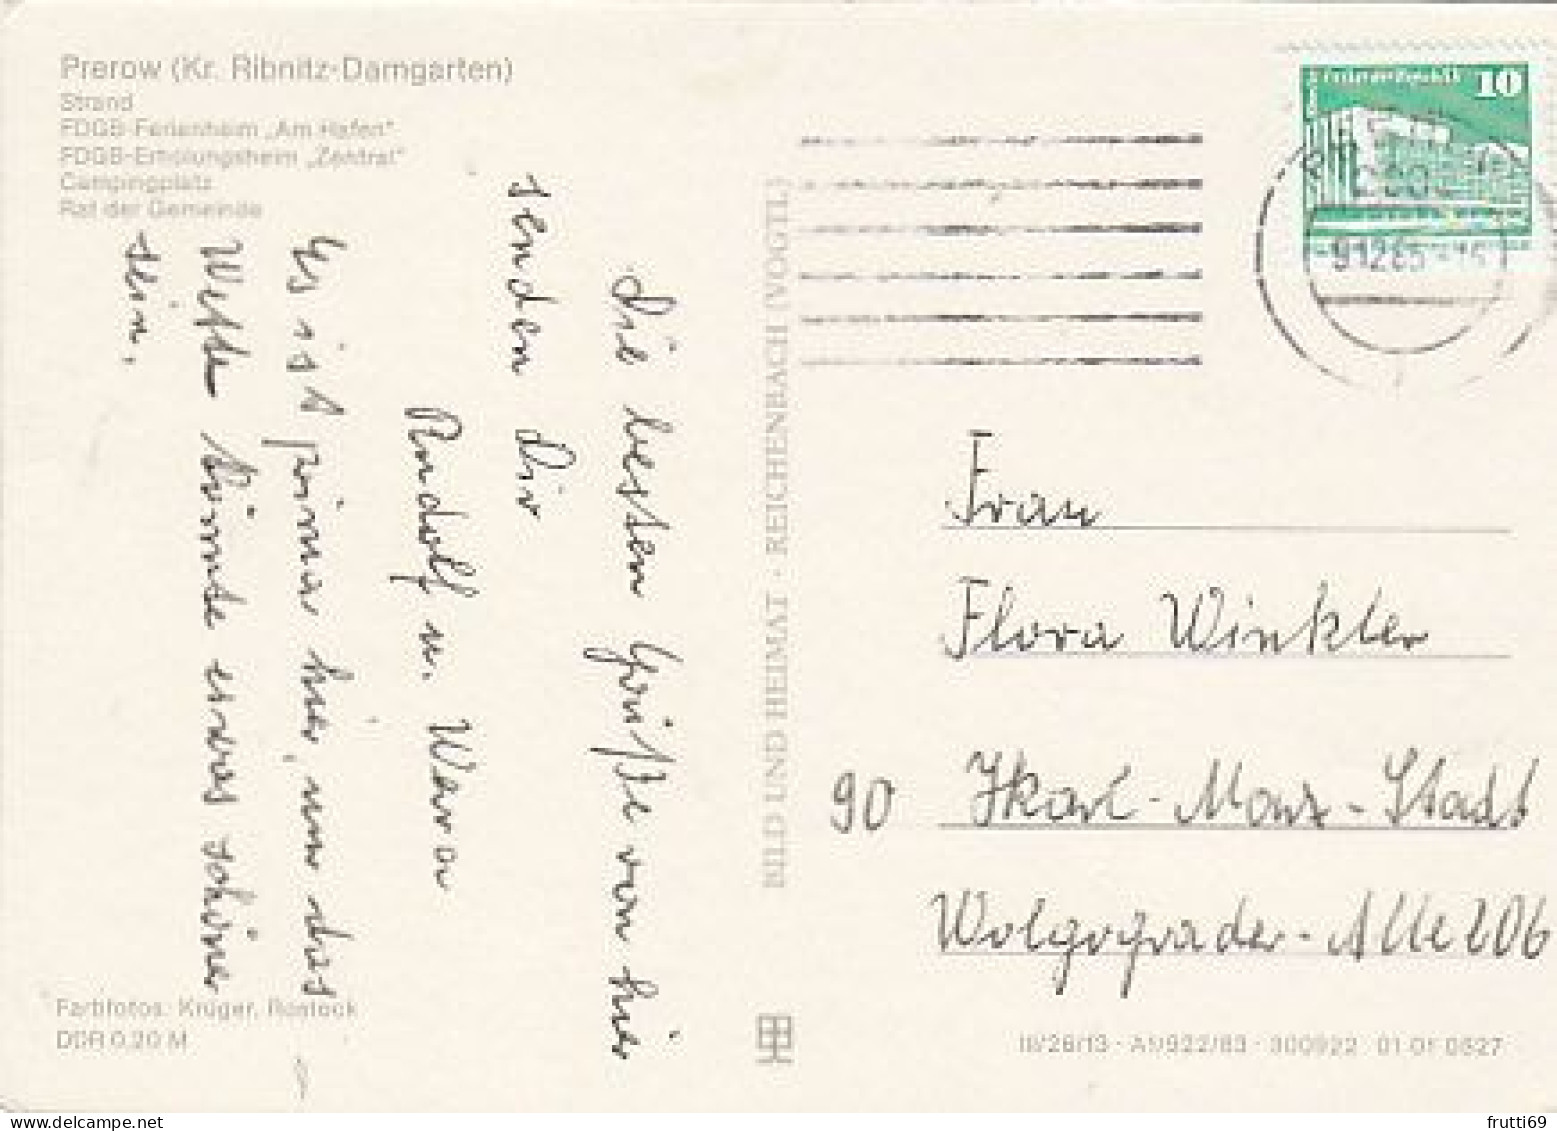 Prerow (Kr. Ribnitz-Damgarten)
Strand
FDGB-Ferienheim „Am Hafen"
FDGB-Erholungsheim „Zentral"
Campingplatz
Rat der Gemeinde
Die besten Grüße von hier
senden Dir
Rudolf u. Wera
Es ist prima hier, nur das
Wetter könnte etwas schöner
sein.
Farbfotos: Krüger, Rostock
DDR 0,20 M
BILD UND HEIMAT · REICHENBACH (VOGTL)
10
9.12.85
Frau
Flora Winkler
90 Karl-Marx-Stadt
Wolgograder-Alle 206
III/26/13 · A1/922/83 · 300922 01 01 0527
frutti69